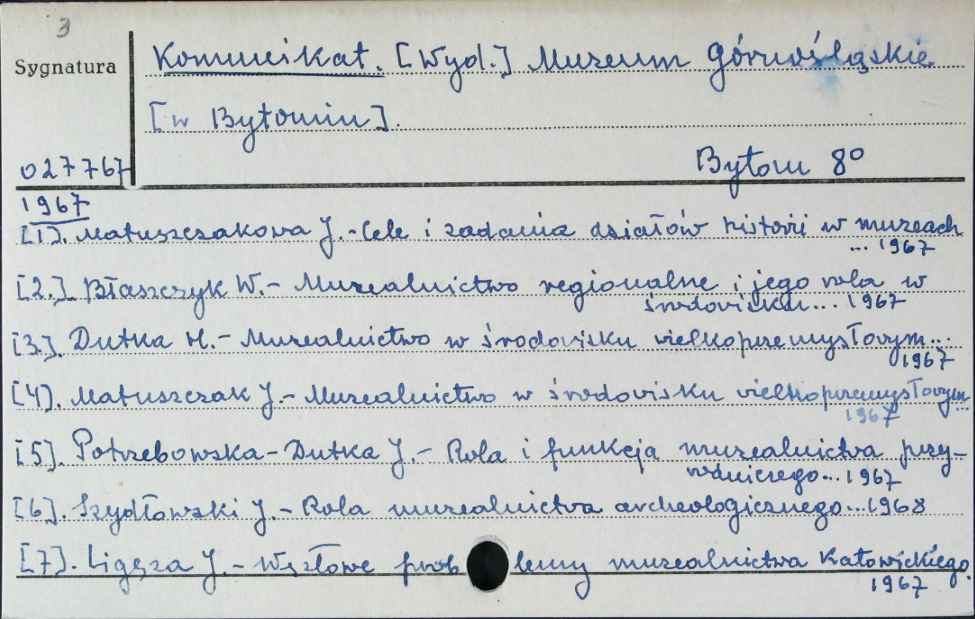 3
Sygnatura
Komunikat. [Wyd.] Muzeum Górnośląskie
[w Bytomiu].
027767
Bytom 8°
1967
[1]. Matuszczakowa J.-Cele i zadania działów historii w muzeach
... 1967
[2.]. Błaszczyk W.- Muzealnictwo regionalne i jego rola w
środowisku... 1967
[3]. Dutka M.- Muzealnictwo w środowisku wielkoprzemysłowym...
1967
[4]. Matuszczak J.- Muzealnictwo w środowisku wielkoprzemysłowym...
1967
[5]. Potrzebowska-Dutka J.- Rola i funkcja muzealnictwa przy-
rodniczego... 1967
[6]. Szydłowski J.- Rola muzealnictwa archeologicznego...1968
[7]. Ligęza J.- Węzłowe problemy muzealnictwa katowickiego.
1967